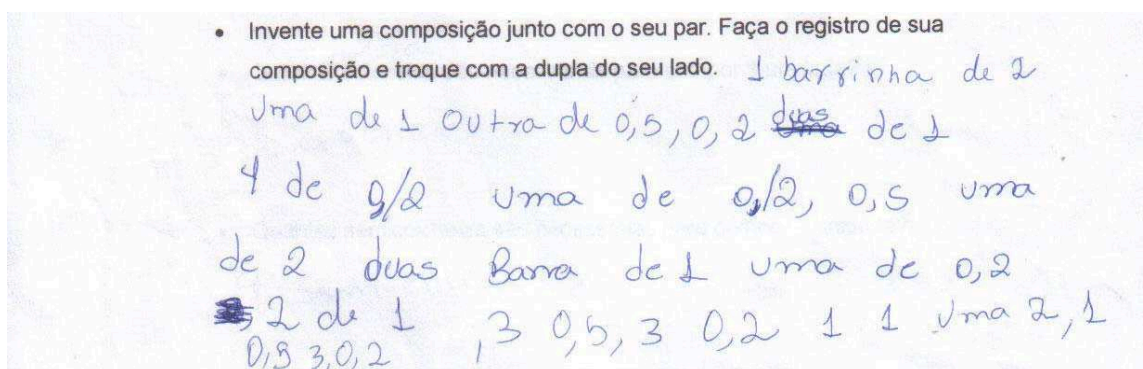 • Invente uma composição junto com o seu par. Faça o registro de sua
composição e troque com a dupla do seu lado. 1 barrinha de 2
uma de 1 outra de 0,5, 0,2 duas de 1
4 de 0,2 uma de 0,2, 0,5 uma
de 2 duas Barra de 1 uma de 0,2
2 de 1 , 3 0,5, 3 0,2 1 1 uma 2, 1
0,5 3,0,2